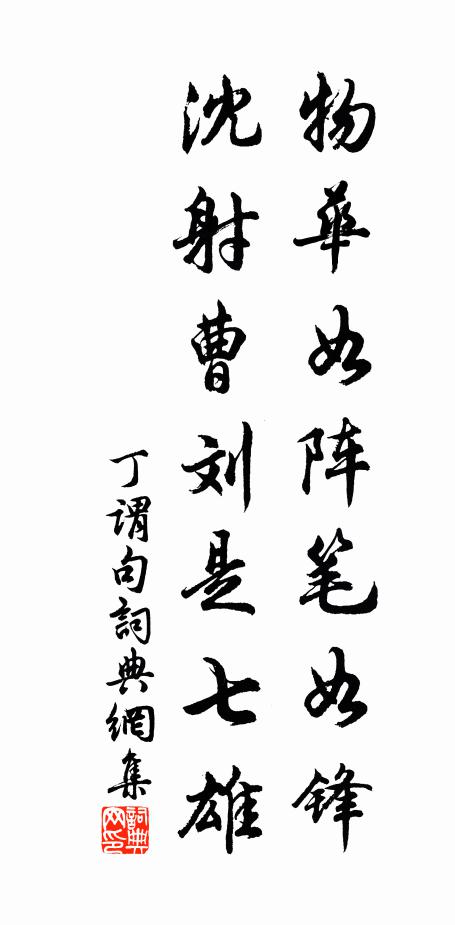 物華如阵笔如锋
沈射曹刘是七雄
丁謂句詞典網集
詞典网印